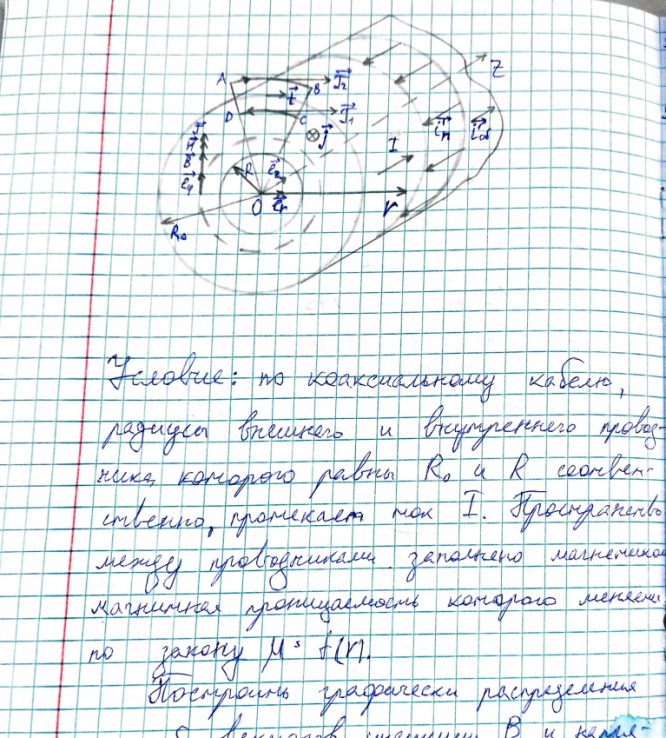 A
B
D
C
J₂
J₁
t
j
R
O
R₀
I
r
Z
iₙ
J
H
B
Условие: по коаксиальному кабелю,
радиусы внешнего и внутреннего провод-
ника, которого равны R₀ и R соответ-
ственно, протекает ток I. Пространство
между проводниками заполнено магнетиком
магнитная проницаемость которого меняется
по закону μ = f(r).
Построить графически распределения
векторов B и напря-